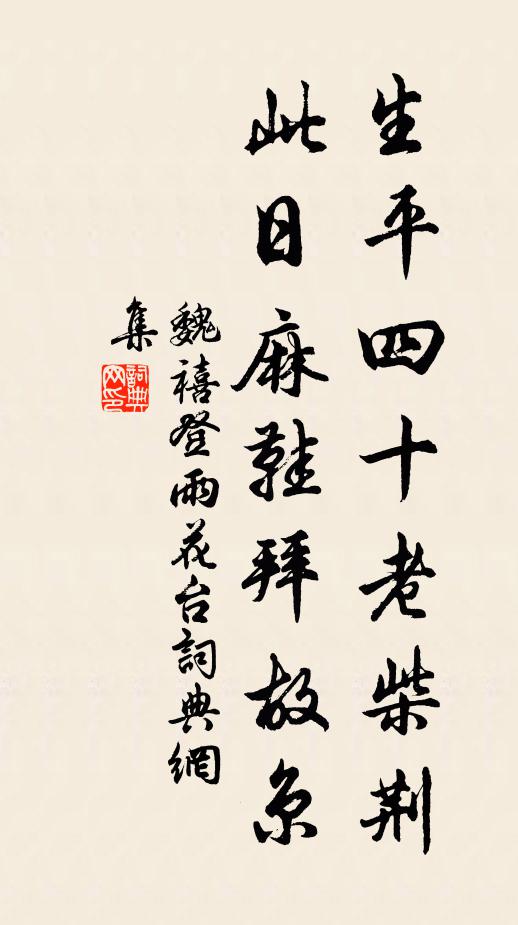 生平四十老柴荆
此日麻鞋拜故京
魏禧登雨花台詞典網
集
詞典
网印